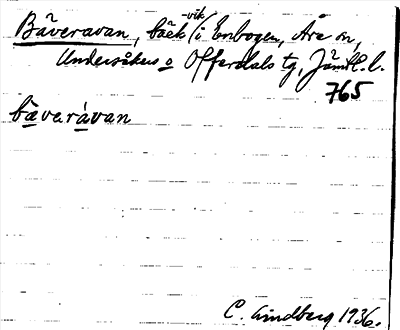 Bäveravan, bäck-vik i Enbogen, Åre sn,
Undersåkers o Offerdals tg, Jämtl. l.
765
bæverávan
C. Lindberg 1936.